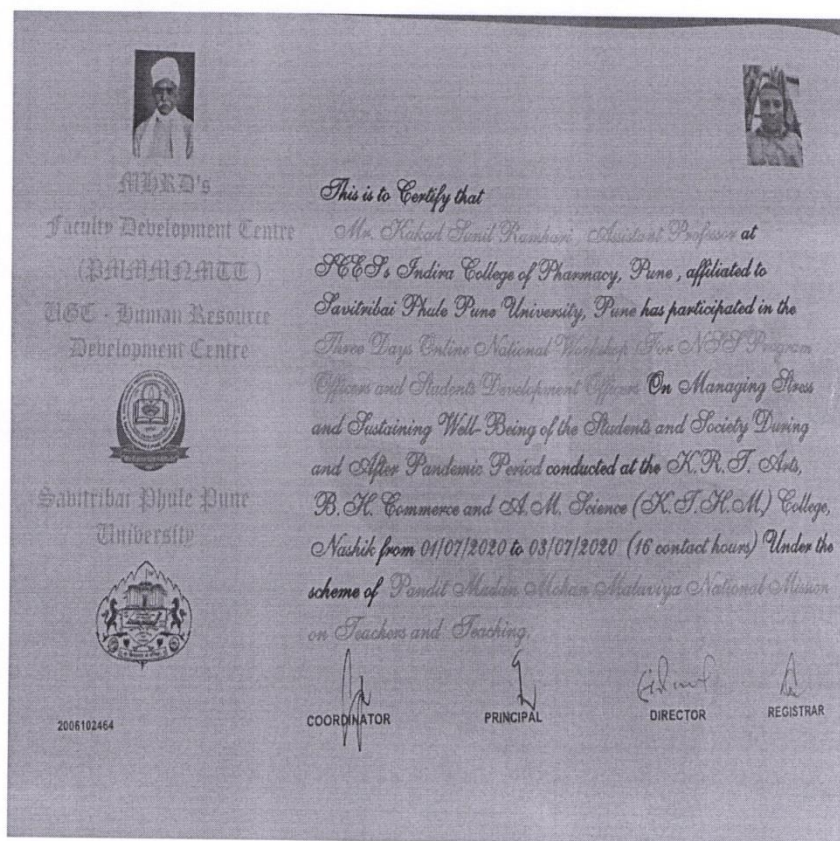 MHRD's
Faculty Development Centre
(PMMMNMTT)
UGC - Human Resource
Development Centre
Savitribai Phule Pune
University
2006102464
This is to Certify that
Mr. Kakad Sunil Ramhari, Assistant Professor at
SCES's Indira College of Pharmacy, Pune, affiliated to
Savitribai Phule Pune University, Pune has participated in the
Three Days Online National Workshop For NSS Program
Officers and Students Development Officers On Managing Stress
and Sustaining Well-Being of the Students and Society During
and After Pandemic Period conducted at the K.R.T. Arts,
B.H. Commerce and A.M. Science (K.T.H.M.) College,
Nashik from 01/07/2020 to 03/07/2020 (16 contact hours) Under the
scheme of Pandit Madan Mohan Malaviya National Mission
on Teachers and Teaching.
COORDINATOR PRINCIPAL DIRECTOR REGISTRAR